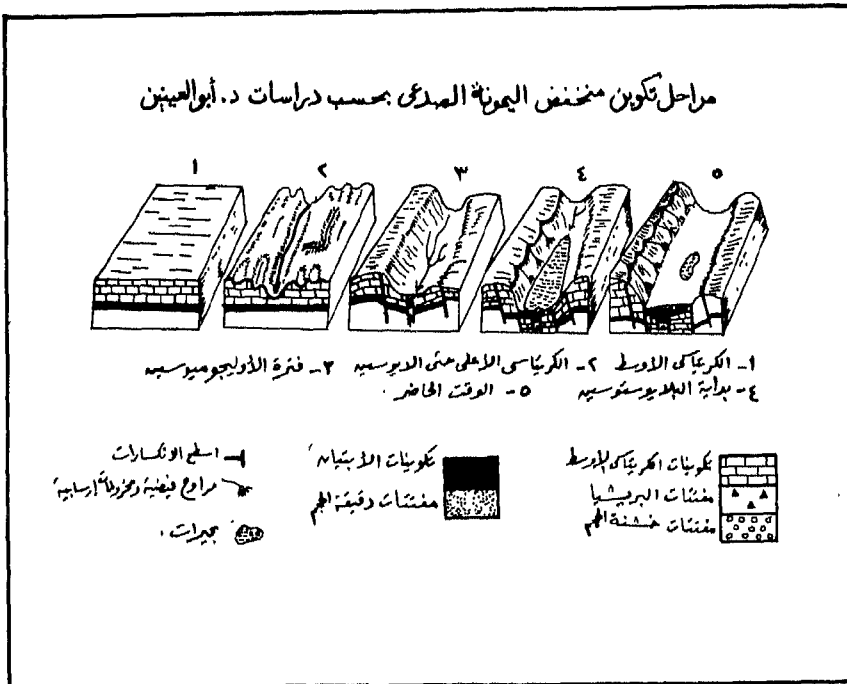 مراحل تكوين منخفض اليمونة الصدعى بحسب دراسات د. أبو العينين
١ ٢ ٣ ٤ ٥
١- الكريتاسى الاوسط ٢- الكريتاسى الأعلى حتى الايوسين ٣- فترة الأوليجوميوسين
٤- بداية البلايوستوسين ٥- الوقت الحاضر .
تكوينات الكريتاسى الاوسط
مفتتات البريشيا
مفتتات خشنة الحجم
تكوينات الأبتيان
مفتتات دقيقة الحجم
اسطح الانكسارات
مراوح فيضية ومخروطات إرسابية
بحيرات .